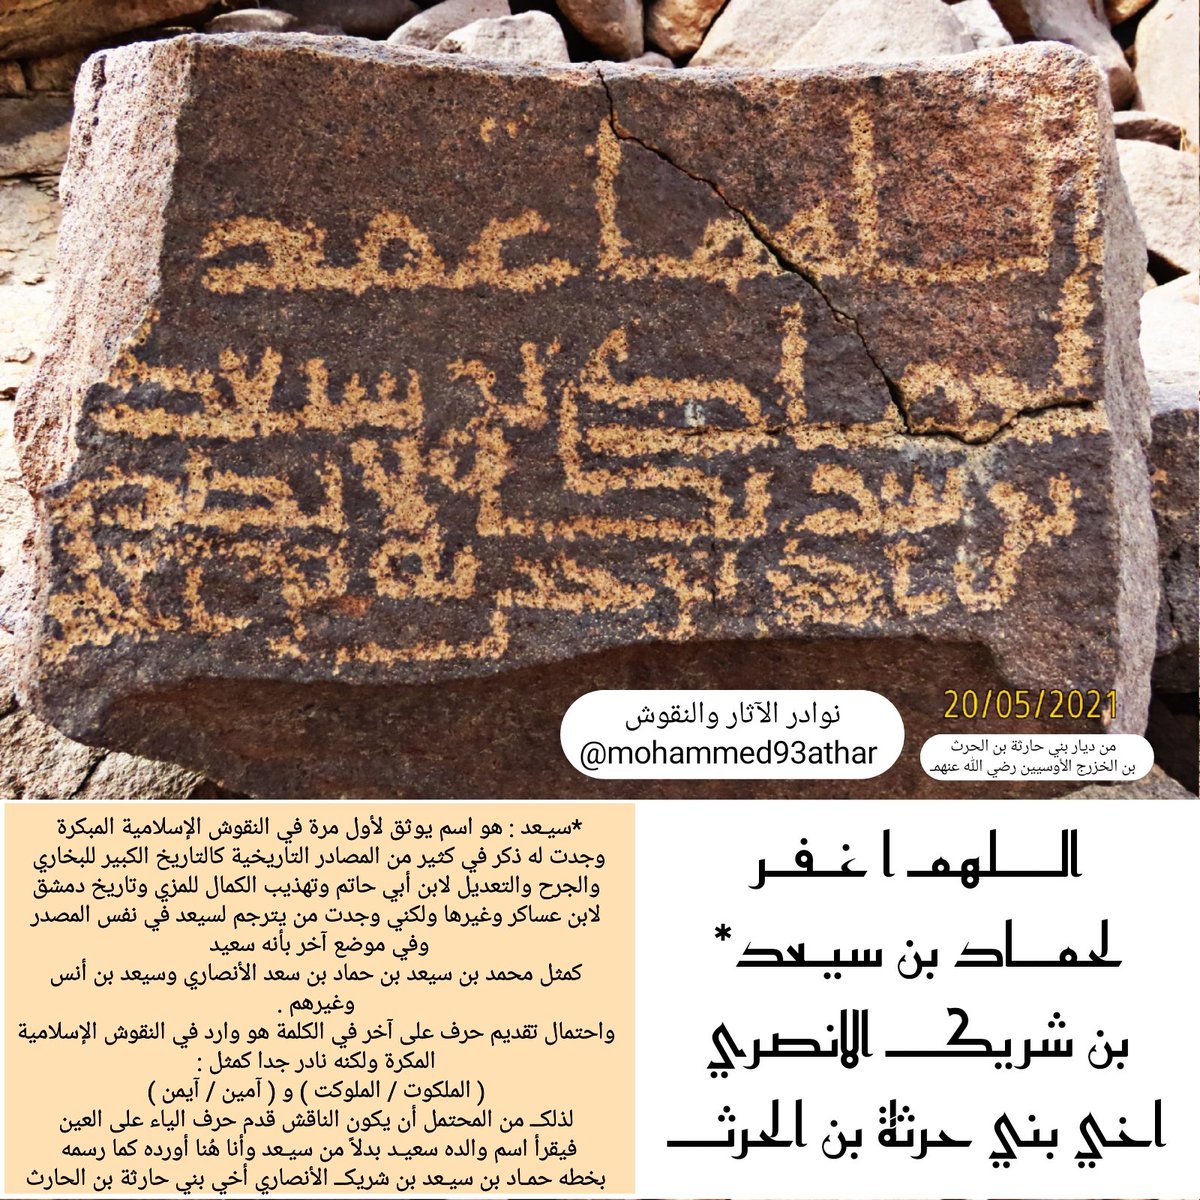 اللهم اغفر
لحماد بن سيعد
بن شريك الانصري
اخي بني حرثة بن الحرث
20/05/2021
نوادر الآثار والنقوش
@mohammed93athar
من ديار بني حارثة بن الحرث
بن الخزرج الأوسيين رضي الله عنهمـ
الـلـهمـ ا غـفـر
لحمـاد بن سيـعد*
بن شريكـ الانصري
اخي بني حرثة بن الحرثـ
*سيـعد : هو اسم يوثق لأول مرة في النقوش الإسلامية المبكرة
وجدت له ذكر في كثير من المصادر التاريخية كالتاريخ الكبير للبخاري
والجرح والتعديل لابن أبي حاتم وتهذيب الكمال للمزي وتاريخ دمشق
لابن عساكر وغيرها ولكني وجدت من يترجم لسيعد في نفس المصدر
وفي موضع آخر بأنه سعيد
كمثل محمد بن سيعد بن حماد بن سعد الأنصاري وسيعد بن أنس
وغيرهم .
واحتمال تقديم حرف على آخر في الكلمة هو وارد في النقوش الإسلامية
المكرة ولكنه نادر جدا كمثل :
( الملكوت / الملوكت ) و ( آمين / آيمن )
لذلكـ من المحتمل أن يكون الناقش قدم حرف الياء على العين
فيقرأ اسم والده سعيـد بدلاً من سيـعد وأنا هُنا أورده كما رسمه
بخطه حمـاد بن سيـعد بن شريكـ الأنصاري أخي بني حارثة بن الحارث